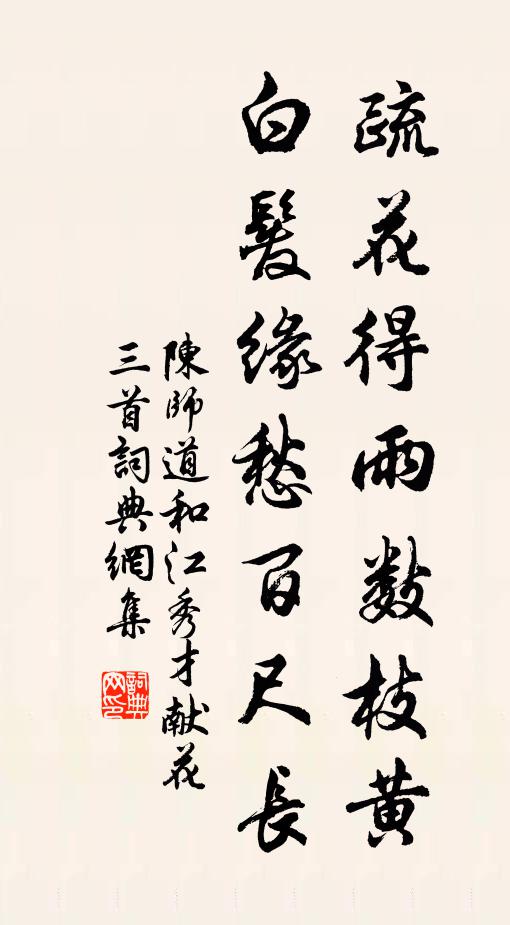 疏花得雨數枝黃
白髮緣愁百尺長
陳師道和江秀才獻花
三首詞典網集
詞典網印